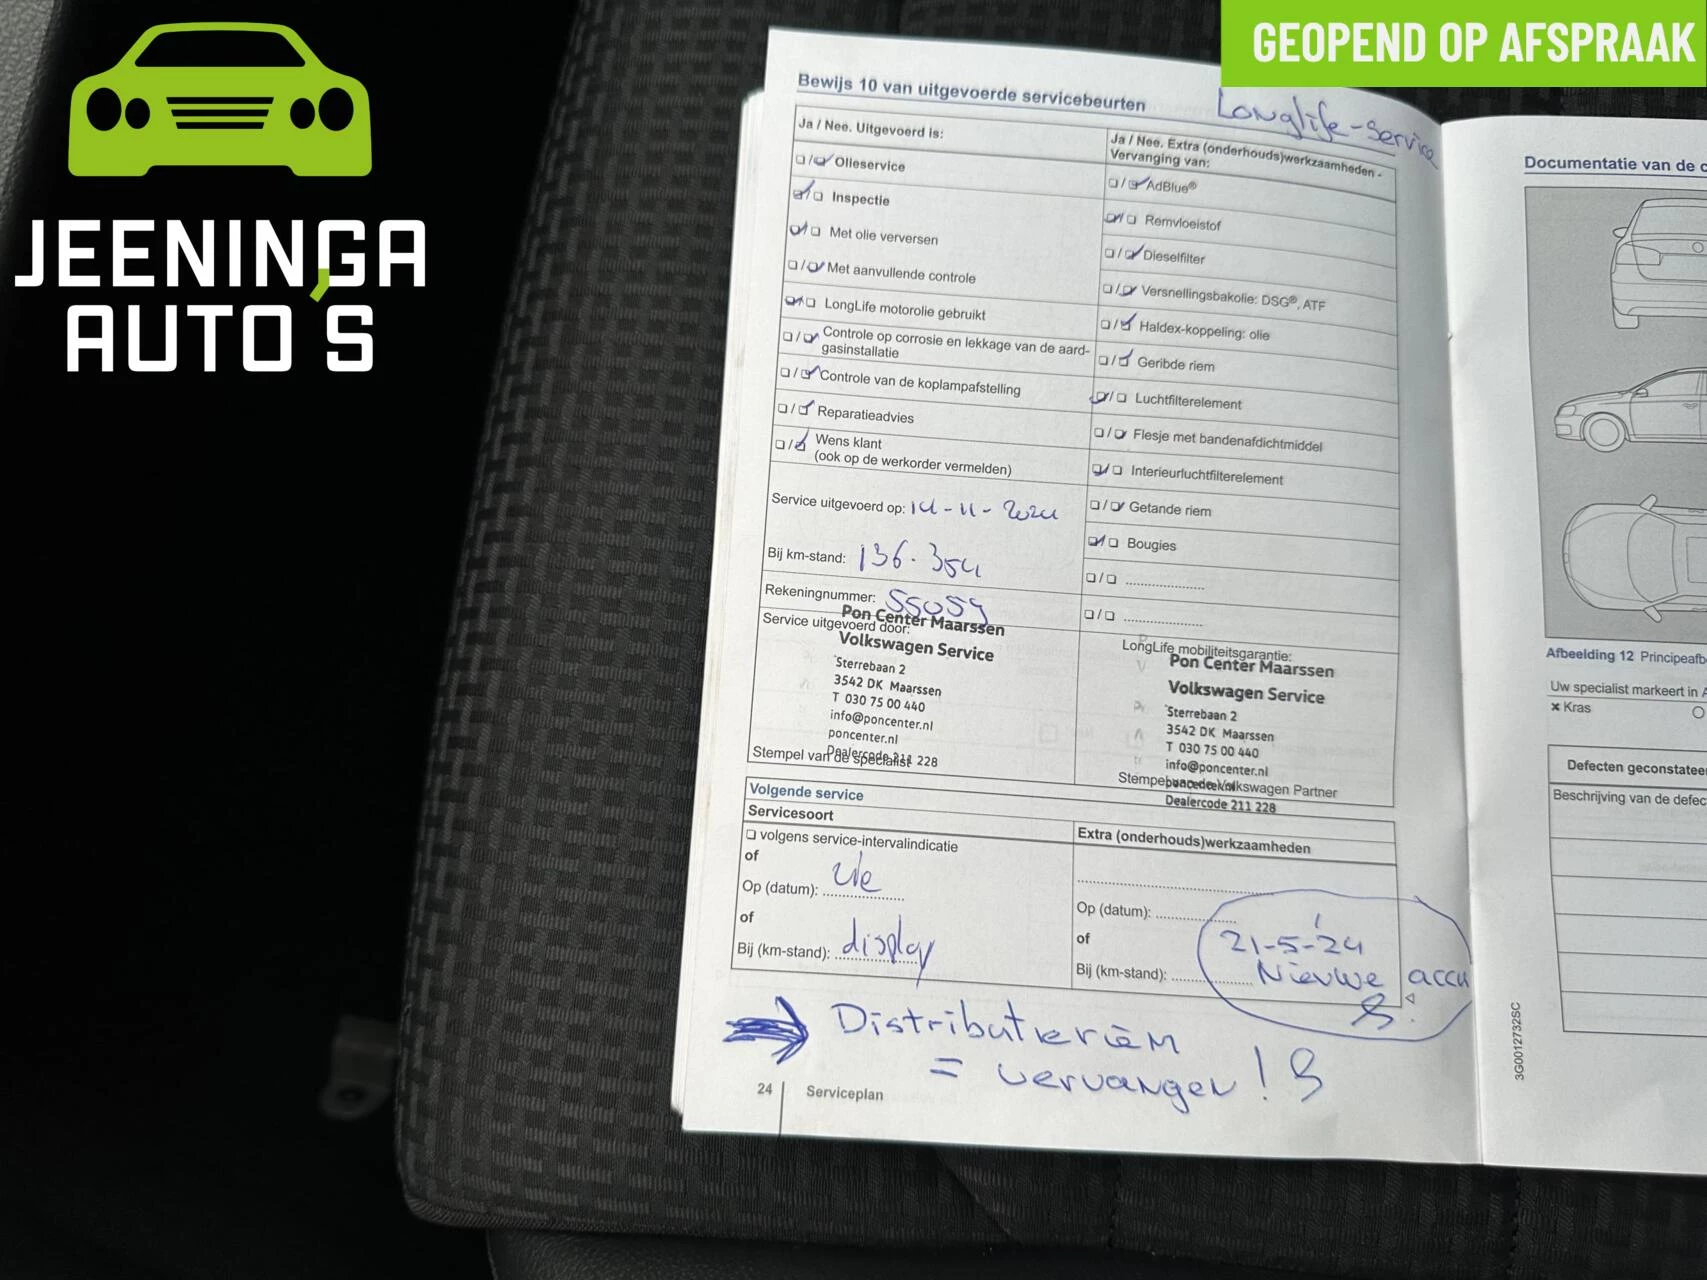 JEENINGA
AUTO'S
GEOPEND OP AFSPRAAK
Bewijs 10 van uitgevoerde servicebeurten
Longlife-Service
Ja / Nee. Uitgevoerd is:
❏/❏ Olieservice
❏/❏ Inspectie
❏/❏ Met olie verversen
❏/❏ Met aanvullende controle
❏/❏ LongLife motorolie gebruikt
❏/❏ Controle op corrosie en lekkage van de aard-
gasinstallatie
❏/❏ Controle van de koplampafstelling
❏/❏ Reparatieadvies
❏/❏ Wens klant
(ook op de werkorder vermelden)
Service uitgevoerd op: 14-11-2024
Bij km-stand: 136.354
Rekeningnummer: 55059
Service uitgevoerd door:
Pon Center Maarssen
Volkswagen Service
Sterrebaan 2
3542 DK Maarssen
T 030 75 00 440
info@poncenter.nl
poncenter.nl
Dealercode 211 228
Stempel van de specialist
Ja / Nee. Extra (onderhouds)werkzaamheden -
Vervanging van:
❏/❏ AdBlue®
❏/❏ Remvloeistof
❏/❏ Dieselfilter
❏/❏ Versnellingsbakolie: DSG®, ATF
❏/❏ Haldex-koppeling: olie
❏/❏ Geribde riem
❏/❏ Luchtfilterelement
❏/❏ Flesje met bandenafdichtmiddel
❏/❏ Interieurluchtfilterelement
❏/❏ Getande riem
❏/❏ Bougies
❏/❏ ....................
❏/❏ ....................
LongLife mobiliteitsgarantie:
Pon Center Maarssen
Volkswagen Service
Sterrebaan 2
3542 DK Maarssen
T 030 75 00 440
info@poncenter.nl
poncenter.nl
Stempel van de Volkswagen Partner
Dealercode 211 228
Volgende service
Servicesoort
❏ volgens service-intervalindicatie
of
Op (datum): zie
of
Bij (km-stand): display
Extra (onderhouds)werkzaamheden
Op (datum): ....................
of
Bij (km-stand): ....................
21-5-'24
Nieuwe accu
Distributieriem
= vervangen!
24 Serviceplan
Documentatie van de
Afbeelding 12
Uw specialist markeert in
× Kras
Defecten
Beschrijving van de
3G0012732SC